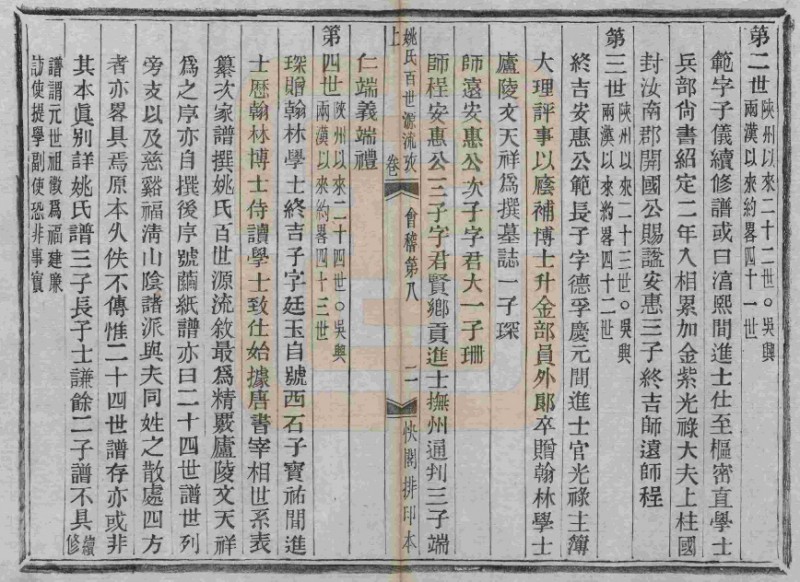 第二世 陜州以來二十二世○吳興
兩漢以來約畧四十一世
範字子儀續修譜或曰滈熙間進士仕至樞密直學士
兵部尙書紹定二年入相累加金紫光祿大夫上柱國
封汝南郡開國公賜諡安惠三子終吉師遠師程
第三世 陜州以來二十三世○吳興
兩漢以來約畧四十二世
終吉安惠公範長子字德孚慶元間進士官光祿主簿
大理評事以廕補博士升金部員外郞卒贈翰林學士
廬陵文天祥爲撰墓誌一子琛
師遠安惠公次子字君大一子珊
師程安惠公三子字君賢鄉貢進士撫州通判三子端
姚氏百世源流攷 卷上 會稽第八 二 快閣排印本
仁端義端禮
第四世 陜州以來二十四世○吳興
兩漢以來約畧四十三世
琛贈翰林學士終吉子字廷玉自號西石子寶祐間進
士歷翰林博士侍讀學士致仕始據唐書宰相世系表
纂次家譜撰姚氏百世源流敘最爲精覈廬陵文天祥
爲之序亦自撰後序號繭紙譜亦曰二十四世譜世列
旁支以及慈谿福淸山陰諸派與夫同姓之散處四方
者亦畧具焉原本久佚不傳惟二十四世譜存亦或非
其本眞别詳姚氏譜三子長子士謙餘二子譜不具 續修
譜謂元世祖徵爲福建廉
訪使提學副使恐非事實